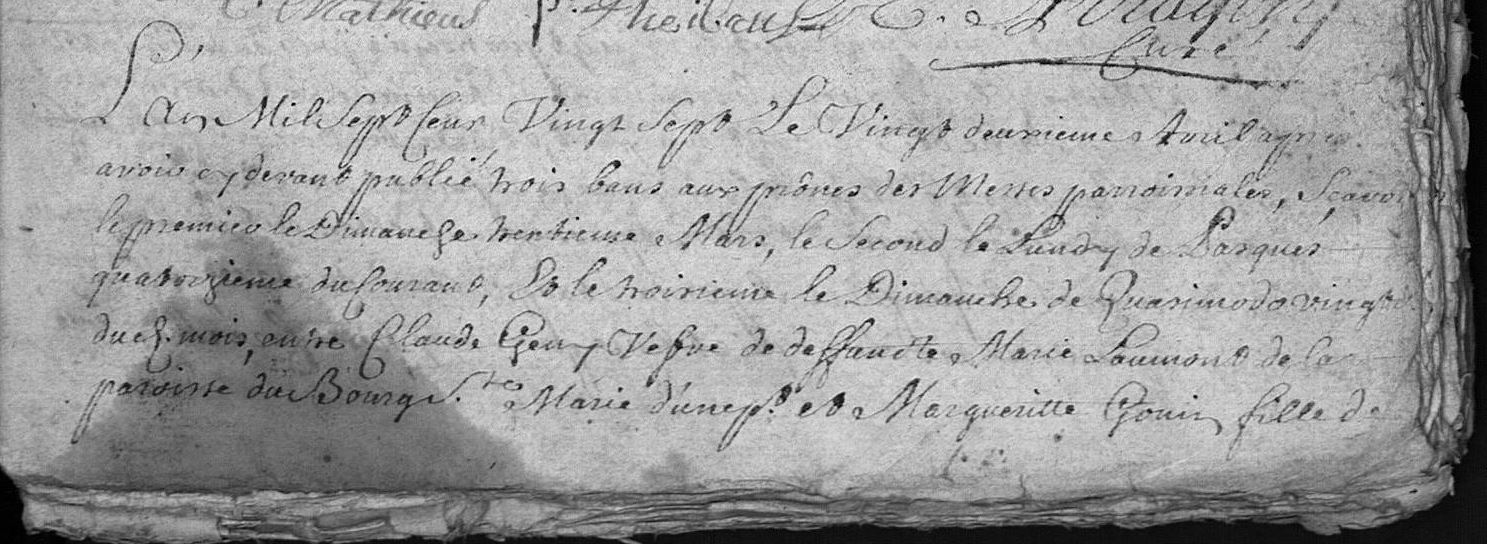 C. Mathieus p. Thebaus
Curé
L'An Mil Sept Cens Vingt Sept Le Vingt deuxieme Avril apres
avoir cy devant publié trois bans aux prônes des Messes parroissiales, Sçavoir
le premier le Dimanche trentieme Mars, le Second le Lundy de Pasques
quatorzieme du Courant, Et le troisieme le Dimanche de Quasimodo vingt
dud. mois, entre Claude Geny Vefve de deffuncte Marie Laumont de la
paroisse du Bourg Ste Marie d'une pt. et Margueritte Gouin fille de